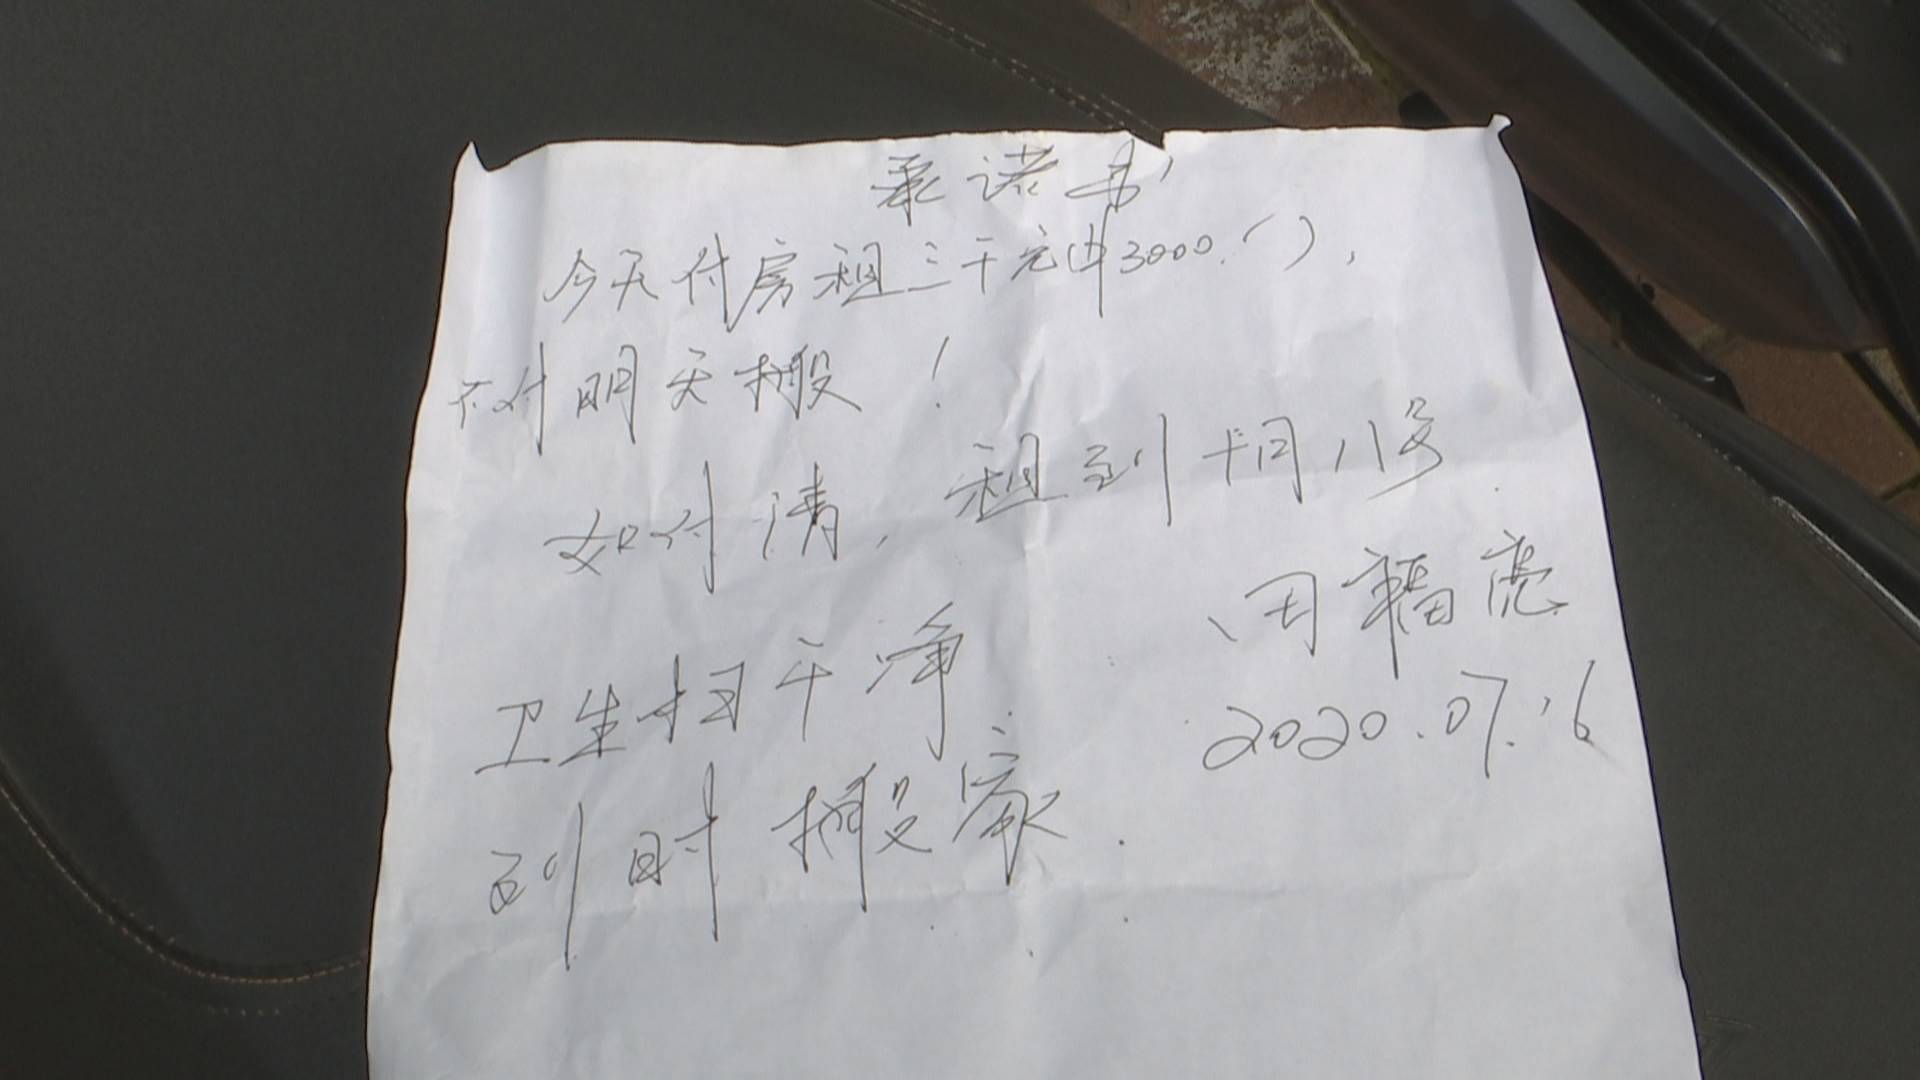 承诺书
今天付房租三千元(¥3000.一),
不付明天搬!
如付清,租到十月八号
周福亮
2020.07.16
卫生扫干净
到时搬家.